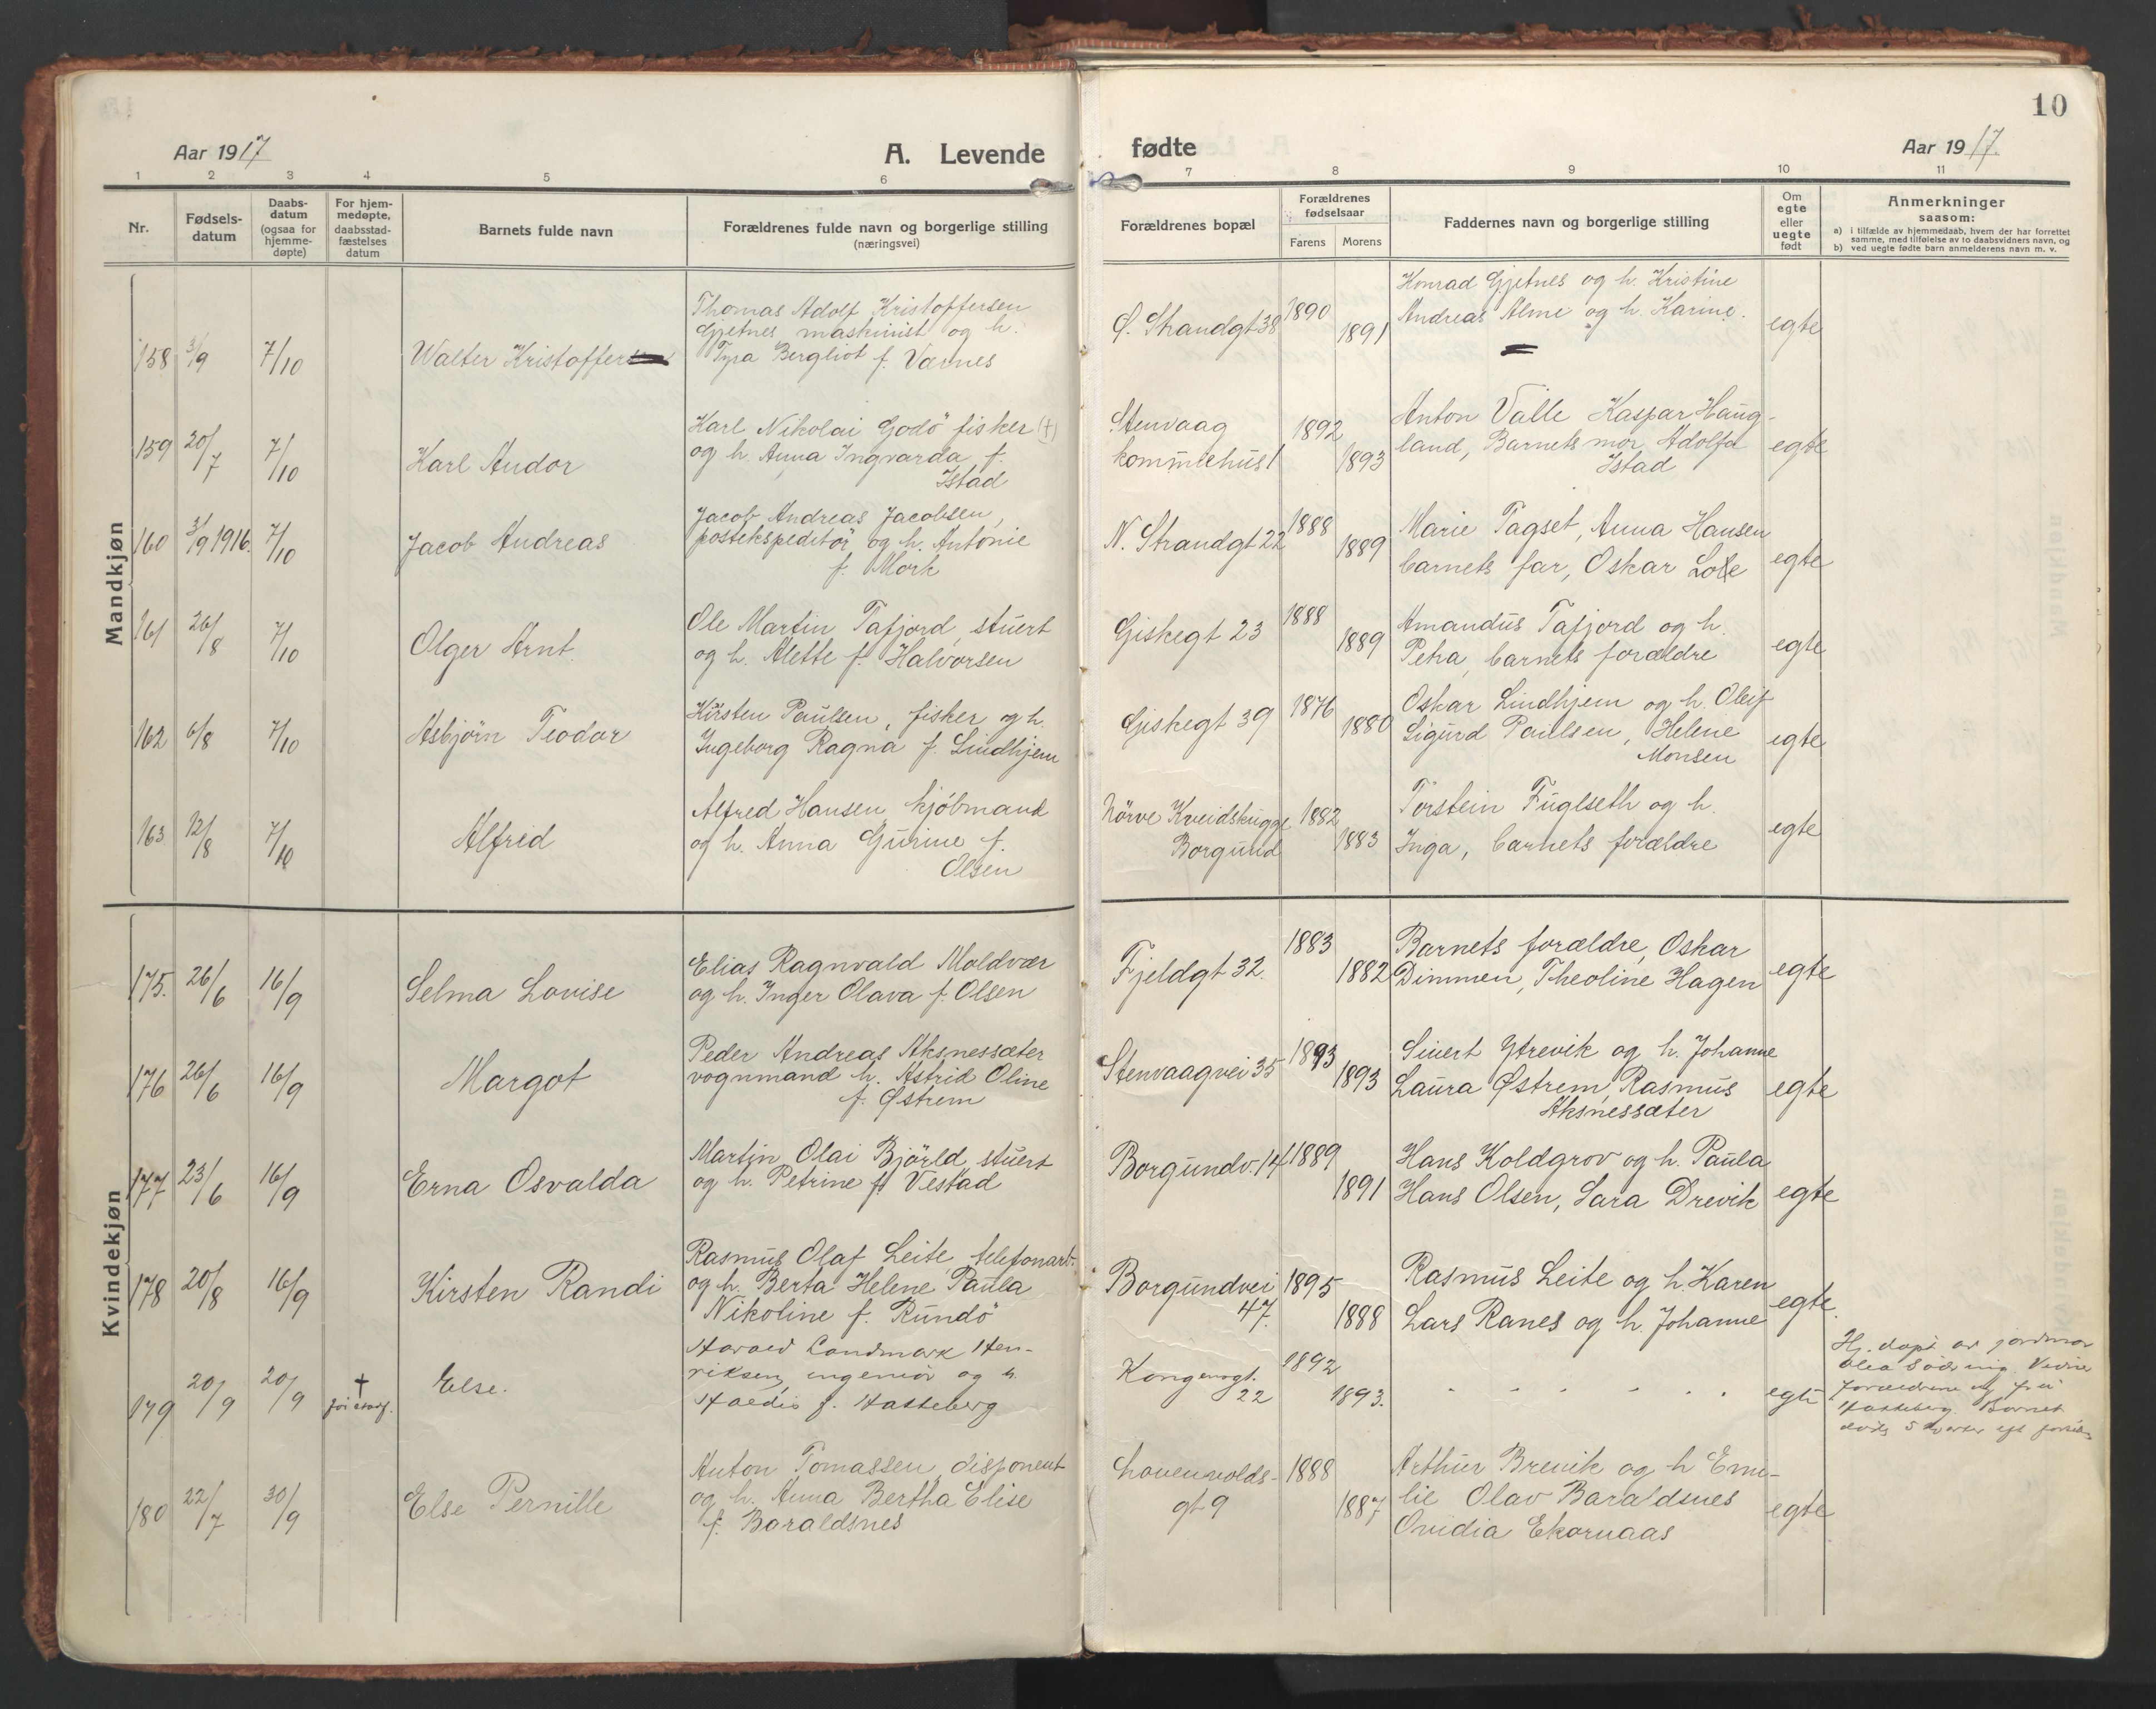 10
Aar 1917
A. Levende fødte
Aar 1917.
1 2 3 4 5 6 7 8 9 10 11
Nr.
Fødsels-
datum
Daabs-
datum
(ogsaa for
hjemme-
døpte)
For hjem-
medøpte,
daabsstad-
fæstelses
datum
Barnets fulde navn
Forældrenes fulde navn og borgerlige stilling
(næringsvei)
Forældrenes bopæl
Forældrenes
fødselsaar
Farens Morens
Faddernes navn og borgerlige stilling
Om
egte
eller
uegte
født
Anmerkninger
saasom:
a) i tilfælde av hjemmedaab, hvem der har forrettet
samme, med tilføielse av to daabsvidners navn, og
b) ved uegte fødte barn anmelderens navn m. v.
Mandkjøn
158 3/9 7/10 Walter Kristoffer
Thomas Adolf Kristoffersen
Gjetnes, maskinist og h.
Tyra Bergliot f. Varnes
S. Strandgt 38 1890 1891
Konrad Gjetnes og h. Kristine
Andreas Alme og h. Karine.
egte
159 20/7 7/10 Karl Andor
Karl Nikolai Godö fisker (+)
og h. Anna Ingvarda f.
Istad
Stenvaag
kommunehus 1
1892 1893
Anton Valle Kaspar Haug-
land, Barnets mor, Adolfa
Istad
egte
160 3/9 1916 7/10 Jacob Andreas
Jacob Andreas Jacobsen,
postekspeditör og h. Antonie
f. Mork
N. Strandgt 22 1888 1889
Marie Tagset, Anna Hansen
barnets far, Oskar Lote
egte
161 26/8 7/10 Olger Arnt.
Ole Martin Tafjord, stuert
og h. Alette f. Halvorsen
Giskegt 23 1888 1889
Amandus Tafjord og h.
Petra, barnets forældre
egte
162 6/8 7/10 Asbjörn Teodor
Kirsten Paulsen, fisker og h.
Ingeborg Ragna f. Lindhjem
Giskegt 39 1876 1880
Oskar Lindhjem og h. Oleif
Sigurd Paulsen, Helene
Monsen
egte
163 12/8 7/10 Alfrid
Alfred Hansen, kjöbmand
og h. Anna Gurine f.
Olsen
Nörve Kveidskugge
Borgund
1882 1883
Torstein Fuglseth og h.
Inga, barnets forældre
egte
Kvindekjøn
175. 26/6 16/9 Selma Lovise
Elias Ragnvald Moldvær
og h. Inger Olava f. Olsen
Fjeldgt 32. 1883 1882
Barnets forældre, Oskar
Dimmen, Theoline Hagen
egte
176 26/6 16/9 Margot
Peder Andreas Aksnessæter
vognmand h. Astrid Oline
f. Østrem
Stenvaagvei 35 1893 1893
Sivert Ytrevik og h. Johanne
Laura Østrem, Rasmus
Aksnessæter
egte
177 23/6 16/9 Erna Osvalda
Martin Olai Björld, stuert
og h. Petrine f. Vestad
Borgundv. 14 1889 1891
Hans Koldgrov og h. Paula
Hans Olsen, Sara Drevik
egte
178 20/8 16/9 Kirsten Randi
Rasmus Olaf Leite, telefonarb.
og h. Berta Helene Paula
Nikoline f. Rundö
Borgundvei
47.
1895 1888
Rasmus Leite og h. Karen
Lars Ranes og h. Johanne
egte.
179 20/9 20/9 † Else.
Harald Landmark Hen-
riksen, ingeniör og h.
Haldis f. Hasseberg
Kongensgt.
22
1892 1893.
" " " " " "
egte
Hj. døpt av jordmor
forældrene og fru
Hasseberg. Barnet
180 22/7 30/9 Else Pernille
Anton Tomassen, disponent
og h. Anna Bertha Elise
f. Baraldsnes
Lovenvolds-
gt 9
1888 1887
Arthur Brevik og h Emi-
lie Olav Baraldsnes
Ovidia Ekornaas
egte